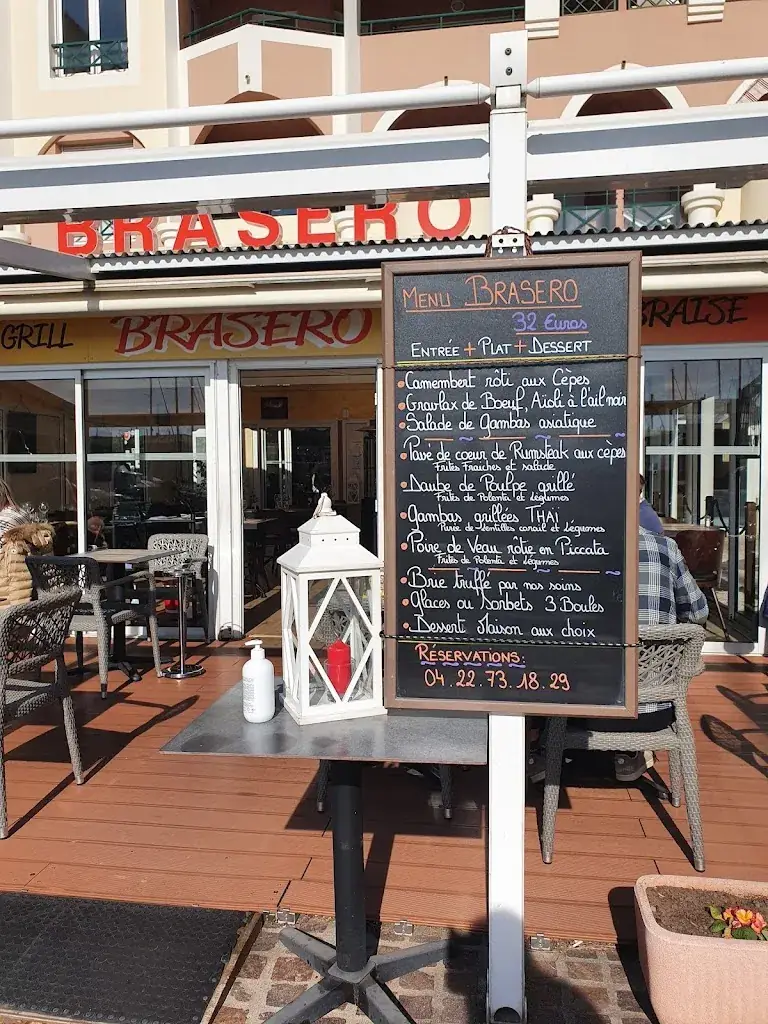 BRASERO
GRILL
BRASERO
BRAISE
MENU BRASERO
32 Euros
ENTRÉE + PLAT + DESSERT
Camembert rôti aux Cèpes
Gravlax de Boeuf, Aïoli à l'ail noir
Salade de Gambas asiatique
Pavé de coeur de Rumsteak aux cèpes
Frites Fraîches et salade
Daube de Poulpe grillé
Frites de Polenta et légumes
Gambas grillées THAÏ
Purée de lentilles corail et légumes
Poire de Veau rôtie en Piccata
Frites de Polenta et légumes
Brie truffé par nos soins
Glaces ou Sorbets 3 Boules
Dessert Maison aux choix
RESERVATIONS:
04.22.73.18.29